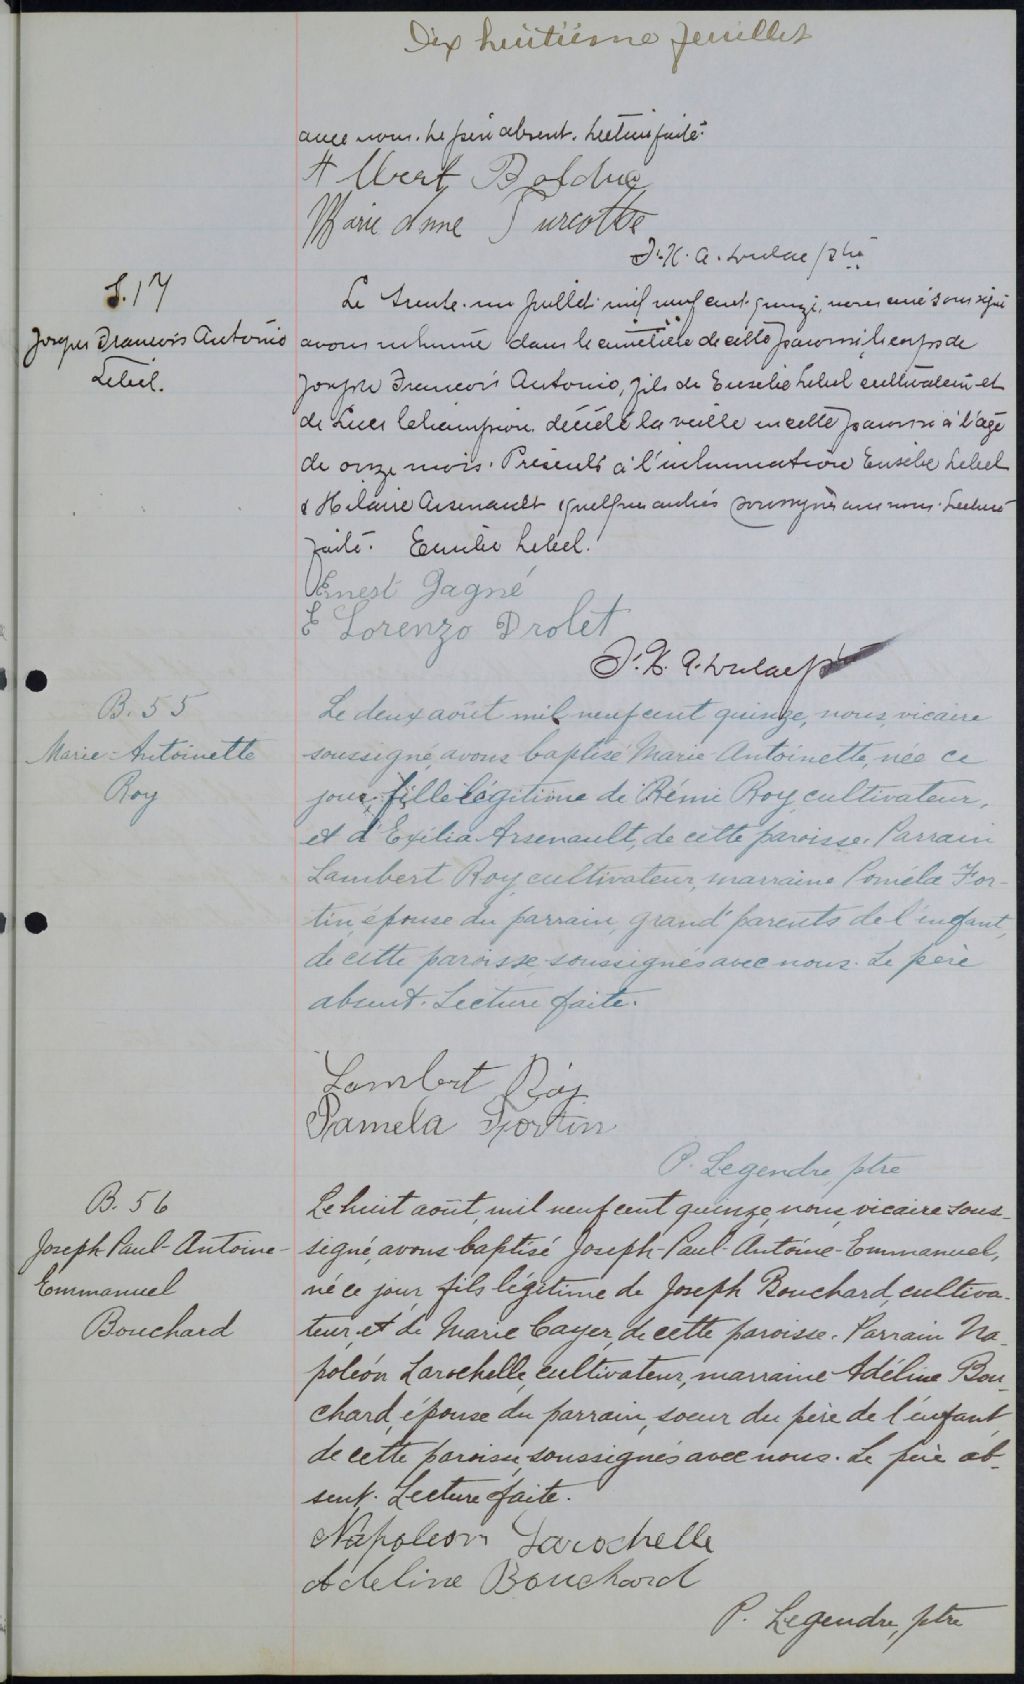 Dix huitième feuillet
avec nous. Le père absent. Lecture faite.
Albert Bolduc
Marie Anne Turcotte
J. A. Dulac ptre
S. 17
Joseph Francois Antonio
Lebel.
Le trente-un juillet mil neuf cent quinze, nous curé soussigné
avons inhumé dans le cimetière de cette paroisse le corps de
Joseph Francois Antonio, fils de Eusebe Lebel cultivateur et
de Lucie Lechampion décédé la veille en cette paroisse à l'age
de onze mois. Présents à l'inhumation Eusèbe Lebel
& Hilaire Arsenault & quelques autres soussignés avec nous. Lecture
faite. Eusèbe Lebel.
Ernest Gagné
E Lorenzo Drolet
J. A. Dulac ptre
B. 55
Marie-Antoinette
Roy
Le deux août mil neuf cent quinze, nous, vicaire
soussigné, avons baptisé Marie Antoinette, née ce
jour, fille légitime de Rémi Roy, cultivateur,
et d'Exilia Arsenault, de cette paroisse. Parrain
Lambert Roy, cultivateur, marraine Poméla For-
tin, épouse du parrain, grand'parents de l'enfant,
de cette paroisse soussignés avec nous. Le père
absent. Lecture faite.
Lambert Roy
Pamela Fortin
P. Legendre ptre
B. 56
Joseph Paul-Antoine-
Emmanuel
Bouchard
Le huit août, mil neuf cent quinze, nous, vicaire sous-
signé, avons baptisé Joseph-Paul-Antoine-Emmanuel,
né ce jour, fils légitime de Joseph Bouchard, cultiva-
teur, et de Marie Cayer, de cette paroisse. Parrain Na-
poléon Larochelle, cultivateur, marraine Adéline Bou-
chard, épouse du parrain, soeur du père de l'enfant,
de cette paroisse, soussignés avec nous. Le père ab-
sent. Lecture faite.
Napoleon Larochelle
Adeline Bouchard
P. Legendre, ptre